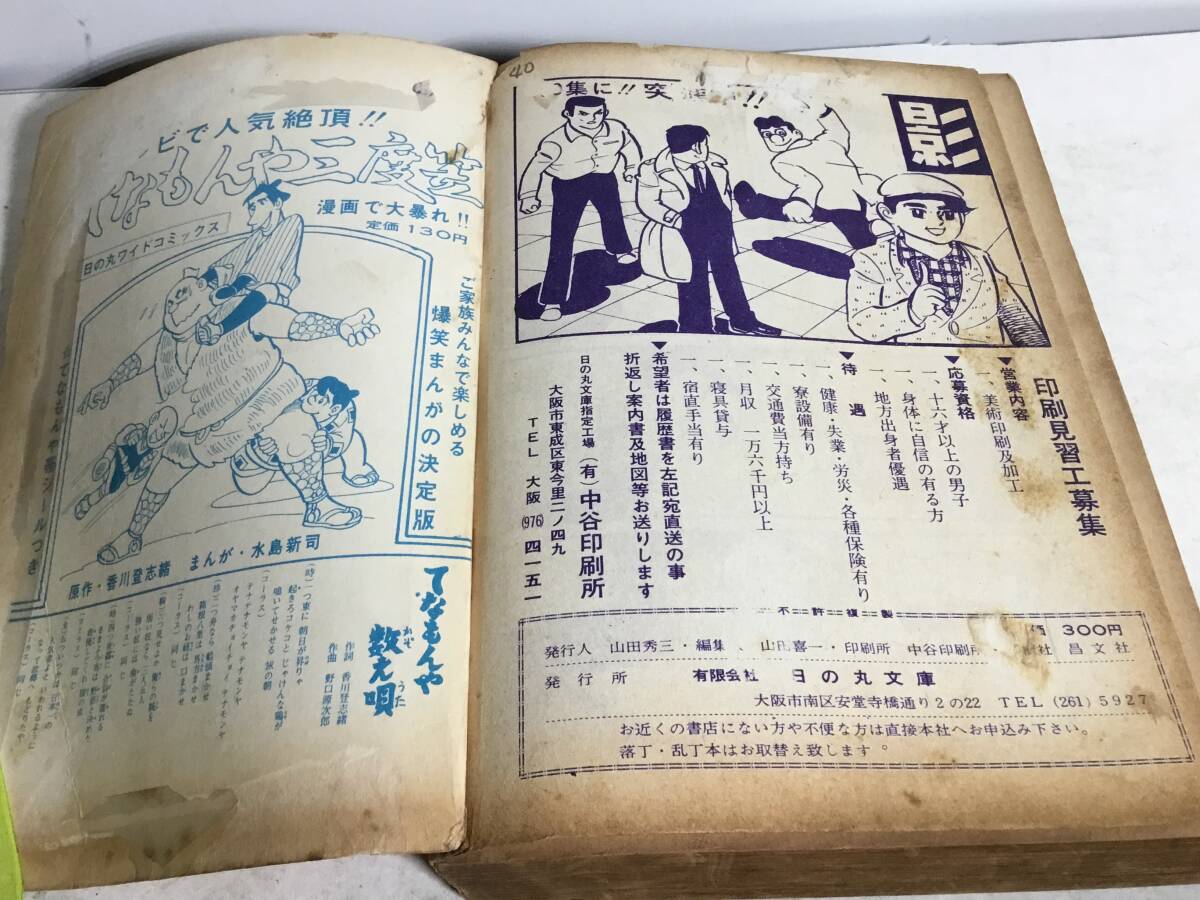 40
集に!!突
影
印刷見習工募集
▼営業内容
一、美術印刷及加工
▼応募資格
一、十六才以上の男子
一、身体に自信の有る方
一、地方出身者優遇
▼待遇
一、健康・失業・労災・各種保険有り
一、寮設備有り
一、交通費当方持ち
一、月収 一万六千円以上
一、寝具貸与
一、宿直手当有り
▼希望者は履歴書を左記宛直送の事
折返し案内書及地図等お送りします
日の丸文庫指定工場 (有)中谷印刷所
大阪市東成区東今里二ノ四九
TEL 大阪(976)四一五一
不許複製
価 300円
発行人 山田秀三・編集 山田喜一・印刷所 中谷印刷所 社 昌文社
発行所 有限会社 日の丸文庫
大阪市南区安堂寺橋通り2の22 TEL(261)5927
お近くの書店にない方や不便な方は直接本社へお申込み下さい。
落丁・乱丁本はお取替え致します。
ビで人気絶頂!!
なもんや三度笠
漫画で大暴れ!!
定価130円
日の丸ワイドコミックス
ご家族みんなで楽しめる
爆笑まんがの決定版
まんが・水島新司
原作・香川登志緒
てなもんや
数え唄
かぞ
うた
作詞 香川登志緒
作曲 野口源次郎
(時)一つ東に 朝日が昇りゃ
起きろコケコと じゃけんな鶏が
鳴いてせかせる 旅の朝
(コーラス)
テナテナモンヤ テナモンヤ
オヤマカチョイチョイ テナモンヤ